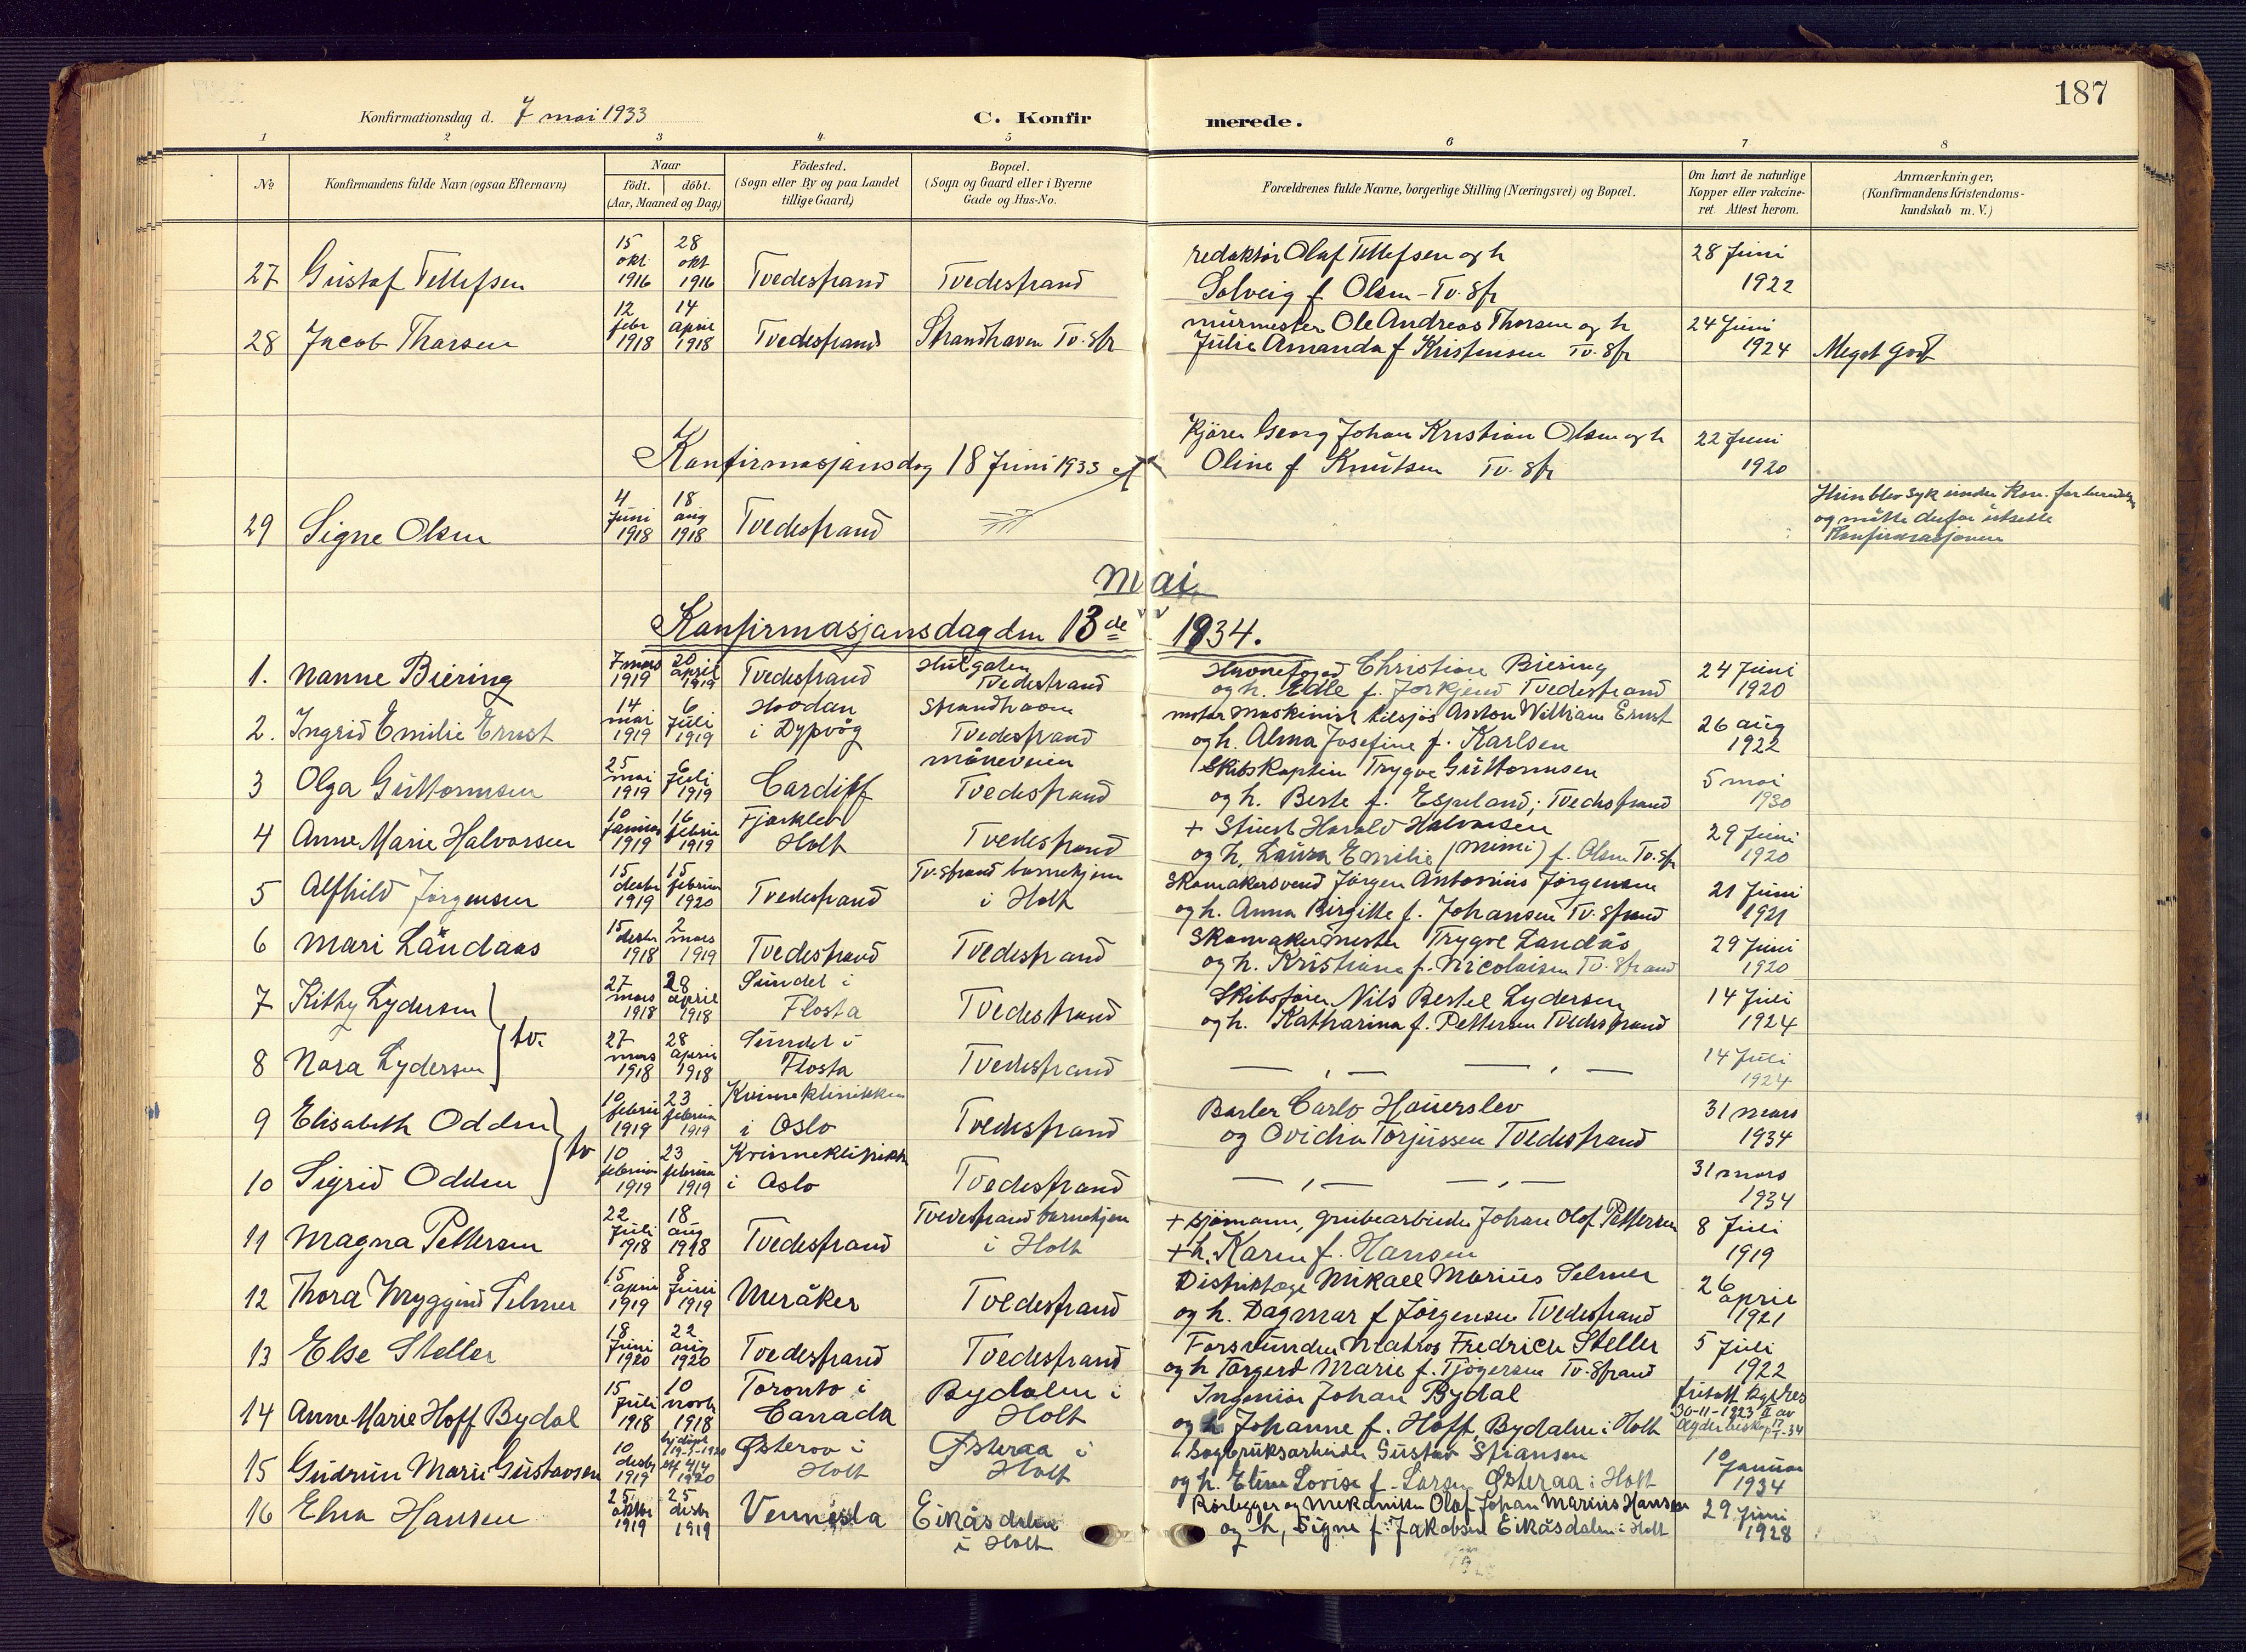 187
Konfirmationsdag d. 7 mai 1933
C. Konfirmerede.
1 2 3 4 5 6 7 8
No
Konfirmandens fulde Navn (ogsaa Efternavn)
Naar
födt. döbt.
(Aar, Maaned og Dag)
Födested.
(Sogn eller By og paa Landet
tillige Gaard)
Bopæl.
(Sogn og Gaard eller i Byerne
Gade og Hus-No.
Forældrenes fulde Navne, borgerlige Stilling (Næringsvei) og Bopæl.
Om havt de naturlige
Kopper eller vakcine-
ret. Attest herom.
Anmærkninger,
(Konfirmandens Kristendoms-
kundskab m. V.)
27 Gustaf Tellefsen 15 okt 1916 28 okt 1916 Tvedestrand Tvedestrand
redaktör Olaf Tellefsen og h
Solveig f Olsen - Tv. Str
28 Juni
1922
28 Jacob Thorsen 12 febr 1918 14 april 1918 Tvedestrand Strandhaven Tv. Str
murmester Ole Andreas Thorsen og h
Julie Amanda f Kristensen Tv. Str
24 Juni
1924
Meget godt
Konfirmasjonsdag 18 Juni 1933
Kjörer Georg Johan Kristian Olsen og h
Oline f Knutsen Tv. Str
22 Juni
1920
29 Signe Olsen 4 Juni 1918 18 aug 1918 Tvedestrand
Hun blev syk under Kon. forberedelse
og måtte derfor utsette
Konfirmasjonen
mai
Konfirmasjonsdag den 13de 1934.
1. Nanne Biering 7 mars 1919 20 april 1919 Tvedestrand Hulgaten
Tvedestrand
Havnefoged Christian Biering
og h. Edle f. Jorkjend Tvedestrand
24 Juni
1920
2. Ingrid Emilie Ernst 14 mai 1919 6 Juli 1919 Hovdan
i Dypvåg
Strandhaven
Tvedestrand
motor maskinist tilsjös Anton William Ernst
og h. Alma Josefine f. Karlsen
26 aug
1922
3 Olga Guttormsen 25 mai 1919 6 Juli 1919 Cardiff
måneveien
Tvedestrand
Skibskaptein Trygve Guttormsen
og h. Berte f. Espeland; Tvedestrand
5 mai
1930
4 Anne Marie Halvorsen 10 Januar 1919 16 februar 1919 Fjærkleiv
Holt
Tvedestrand
+ Stuert Harald Halvorsen
og h. Laura Emilie (Mimi) f. Olsen Tv. Str
29 Juni
1920
5 Alfhild Jörgensen 15 desbr 1919 15 februar 1920 Tvedestrand
Tv.strand barnehjem
i Holt
Skomakersvend Jörgen Antonius Jörgensen
og h. Anna Birgitte f. Johansen Tv. Strand
21 Juni
1921
6 Mari Landaas 15 desbr 1918 2 mars 1919 Tvedestrand Tvedestrand
Skomakermester Trygve Landås
og h. Kristiane f. Nicolaisen Tv. Strand
29 Juni
1920
7 Kitty Lydersen 27 mars 1918 28 april 1918 Sundet i
Flosta
Tvedestrand
Skibsförer Nils Bertel Lydersen
og h. Katharina f. Pettersen Tvedestrand
14 Juli
1924
tv.
8 Nora Lydersen 27 mars 1918 28 april 1918 Sundet i
Flosta
Tvedestrand
— , — — , —
14 Juli
1924
9 Elisabeth Odden 10 februar 1919 23 februar 1919 Kvinneklinikken
i Oslo
Tvedestrand
Barber Carlo Hauerslev
og Ovidia Torjussen Tvedestrand
31 mars
1934
tv
10 Sigrid Odden 10 februar 1919 23 februar 1919 Kvinneklinikk
i Oslo
Tvedestrand
— , — — , —
31 mars
1934
11 Magna Pettersen 22 Juli 1918 18 aug 1918 Tvedestrand
Tvedestrand barnehjem
i Holt
+ sjömann, grubearbeider Johan Olof Pettersen
+ h. Karen f. Hansen
8 Juli
1919
12 Thora Myggind Selmer 15 april 1919 8 Juni 1919 Meråker Tvedestrand
Distriktslæge Mikael Marius Selmer
og h. Dagmar f Jörgensen Tvedestrand
26 april
1921
13 Else Steller 18 Juni 1920 22 aug 1920 Tvedestrand Tvedestrand
Forsvunden Matros Fredrich Steller
og h Torgerd Marie f. Tjögersen Tv. Strand
5 Juli
1922
14 Anne Marie Hoff Bydal 15 Juli 1918 10 novbr 1918 Toronto i
Canada
Bydalen i
Holt
Ingeniör Johan Bydal
og h Johanne f. Hoff, Bydalen i Holt
30-11-1923
15 Gudrun Marie Gustavsen 10 desbr 1919 hjdöpt 1920 Østeraa i
Holt
Østeraa i
Holt
Sagbruksarbeider Gustav Stiansen
og h. Eline Lovise f. Larsen Østeraa i Holt
10 Januar
1934
16 Elna Hansen 25 oktbr 1919 25 desbr 1919 Vennesla
Eikåsdalen
i Holt
Rörlegger og mekaniker Olaf Johan Marius Hansen
og h, Signe f. Jakobsen Eikåsdalen i Holt
29 Juni
1928